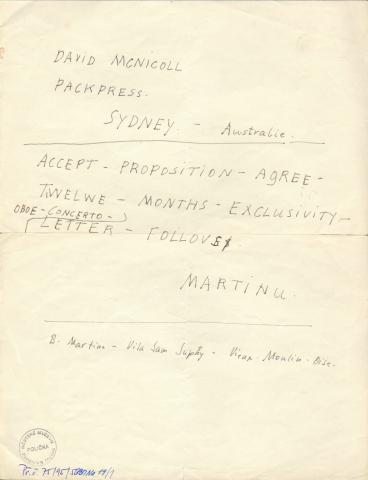 DAVID MCNICOLL
PACKPRESS.
SYDNEY. - Australie.
ACCEPT - PROPOSITION - AGREE -
TWELWE - MONTHS - EXCLUSIVITY -
OBOE - CONCERTO -
LETTER - FOLLOV
MARTINU.
B. Martinu - Vila Sam - Vieux - Moulin - Oise.
POLIČKA